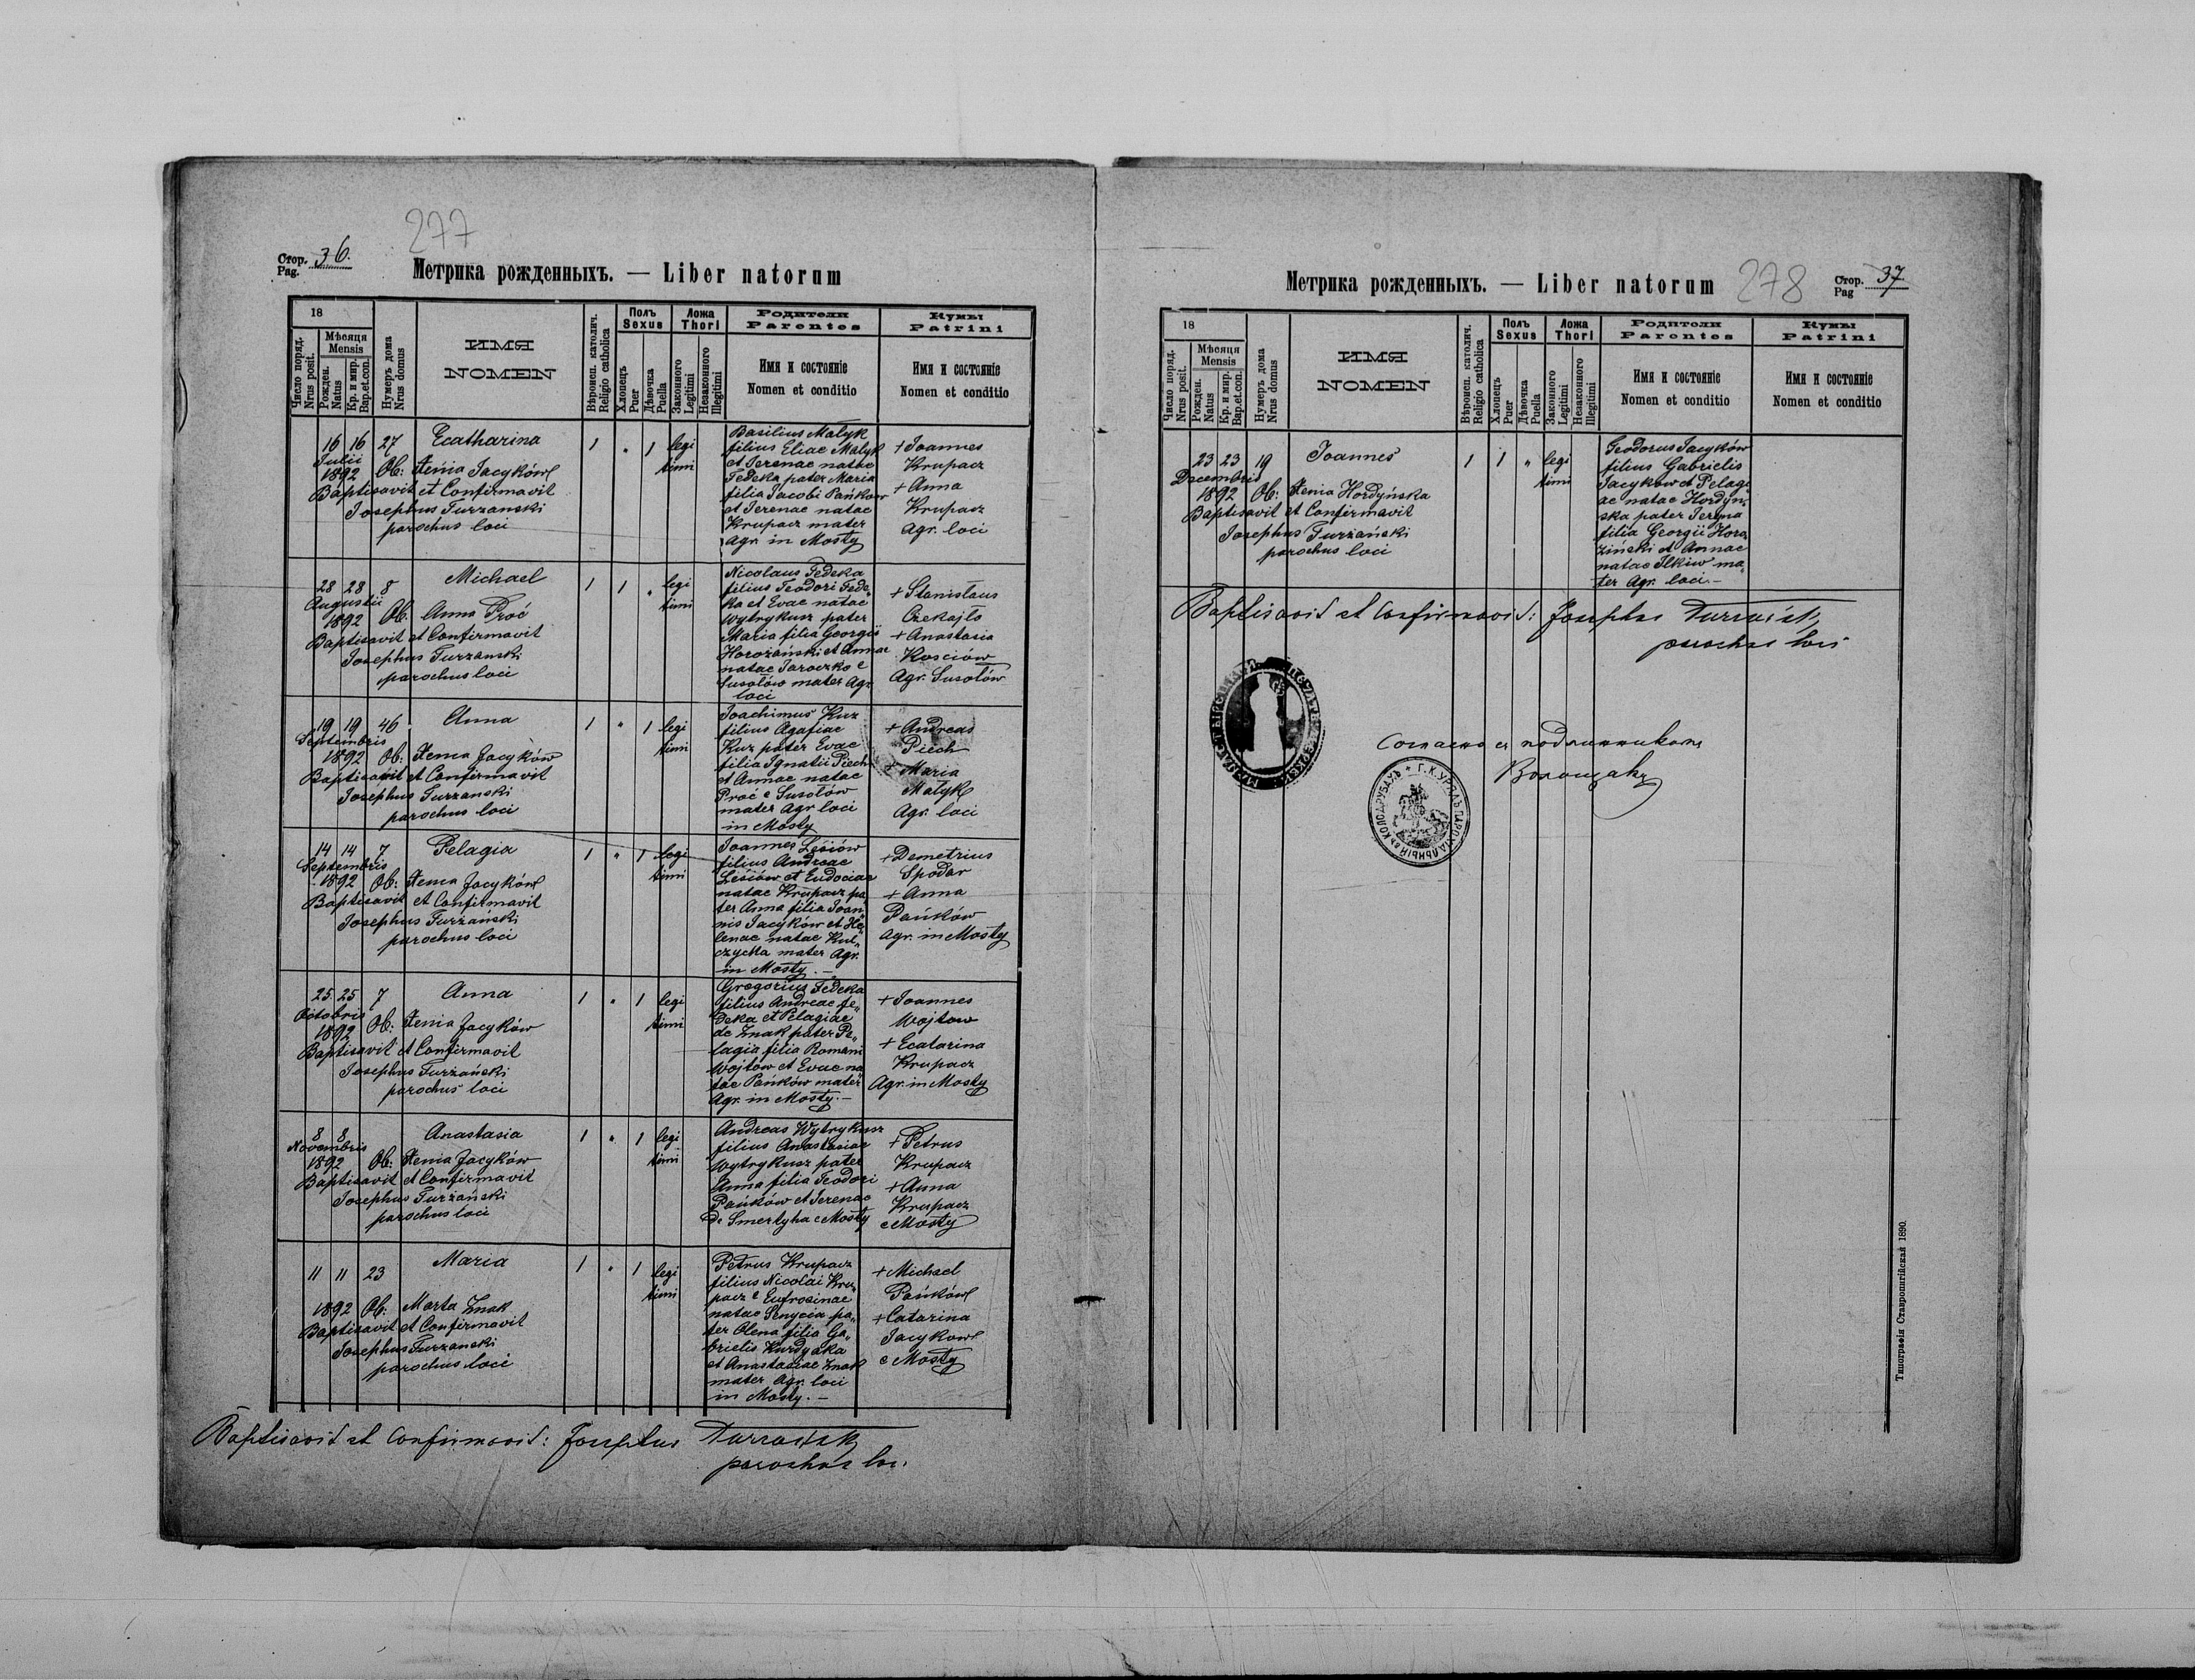 277
Стор. Pag. 36.
Метрика рожденныхъ. — Liber natorum
18
Число поряд. Nrus posit.
Мѣсяця Mensis
Рожден. Natus
Кр. и мир. Bap. et con.
Нумеръ дома Nrus domus
ИМЯ
NOMEN
Вѣроисп. католич. Religio catholica
Полъ Sexus
Хлопецъ Puer
Дѣвочка Puella
Ложа Thori
Законного Legitimi
Незаконного Illegitimi
Родители
Parentes
Имя и состояніе
Nomen et conditio
Кумы
Patrini
Имя и состояніе
Nomen et conditio
16 16 27 Ecatharina 1 " 1 legi
timi
Julii
1892 Ob: Xenia Jacyków
Baptisavit et Confirmavit
Josephus Turzanski
parochus loci
Basilius Matyk
filius Eliae Matyk
et Irenae natae
Fedeka pater Maria
filia Jacobi Pańkow
et Jerenae natae
Krupacz mater
Agr. in Mosty
+ Joannes
Krupacz
+ Anna
Krupacz
Agr. loci
28 28 8 Michael 1 1 " legi
timi
Augustii
1892 Ob: Anna Proć
Baptisavit et Confirmavit
Josephus Turzanski
parochus loci
Nicolaus Fedeka
filius Teodori Fede„
ka et Evae natae
Wytrykusz pater
Maria filia Georgii
Horożański et Annae
natae Jaroczko e
Susołów mater Agr.
loci
+ Stanislaus
Czekajło
+ Anastasia
Kosciów
Agr. Susołów
19 19 46 Anna 1 " 1 legi
timi
Septembris
1892 Ob: Xenia Jacyków
Baptisavit et Confirmavit
Josephus Turzanski
parochus loci
Joachimus Kuz
filius Agafiae
Kuz pater Evae
filia Ignatii Piech
et Annae natae
Proć e Susołów
mater Agr loci
in Mosty
+ Andreas
Piech
+ Maria
Matyk
Agr. loci
14 14 7 Pelagia 1 " 1 legi
timi
Septembris
1892 Ob: Xenia Jacyków
Baptisavit et Confirmavit
Josephus Turzański
parochus loci
Joannes Lesiów
filius Andreae
Lesiów et Eudociae
natae Krupacz pa
ter Anna filia Joan
nis Jacyków et He„
lenae natae Kul„
czycka mater Agr.
in Mosty. —
+ Demetrius
Spodar
+ Anna
Pańków
Agr. in Mosty
25 25 7 Anna 1 " 1 legi
timi
Octobris
1892 Ob: Xenia Jacyków
Baptisavit et Confirmavit
Josephus Turzański
parochus loci
Gregorius Fedeka
filius Andreae Fe„
deka et Pelagiae
de Znak pater Pe„
lagia filia Romani
Wojtow et Evae na
tae Pańków mater
Agr. in Mosty. —
+ Joannes
Wojtow
+ Ecatarina
Krupacz
Agr. in Mosty
8 8 Anastasia 1 " 1 legi
timi
Novembris
1892 Ob: Xenia Jacyków
Baptisavit et Confirmavit
Josephus Turzański
parochus loci
Andreas Wytrykusz
filius Anastasiae
Wytrykusz pater
Anna filia Teodori
Pańków et Jerenae
de Smertyha e Mosty
+ Petrus
Krupacz
+ Anna
Krupacz
e Mosty
11 11 23 Maria 1 " 1 legi
timi
1892 Ob: Marta Znak
Baptisavit et Confirmavit
Josephus Turzanski
parochus loci
Petrus Krupacz
filius Nicolai Kru„
pacz e Eufrosinae
natae Senycia pa„
ter Olena filia Ga„
brielis Kurdydka
et Anastasiae Znak
mater Agr. loci
in Mosty. —
+ Michael
Pańków
+ Catarina
Jacykow
e Mosty
Baptisavit et Confirmavit: Josephus Turzański
parochus loci.
Метрика рожденныхъ. — Liber natorum
278
Стор. Pag 37.
18
Число поряд. Nrus posit.
Мѣсяця Mensis
Рожден. Natus
Кр. и мир. Bap. et con.
Нумеръ дома Nrus domus
ИМЯ
NOMEN
Вѣроисп. католич. Religio catholica
Полъ Sexus
Хлопецъ Puer
Дѣвочка Puella
Ложа Thori
Законного Legitimi
Незаконного Illegitimi
Родители
Parentes
Имя и состояніе
Nomen et conditio
Кумы
Patrini
Имя и состояніе
Nomen et conditio
23 23 19 Joannes 1 1 " legi
timi
Decembris
1892 Ob: Xenia Hordyńska
Baptisavit et Confirmavit
Josephus Turzański
parochus loci
Teodorus Jacyków
filius Gabrielis
Jacykow et Pelagi
ae natae Hordyń„
ska pater Jeryna
filia Georgii Horo„
ziński et Annae
natae Ilkiw ma„
ter Agr. loci. —
Baptisavit et Confirmavit: Josephus Turzański,
parochus loci
Согласно съ подлинникомъ
Волощакъ
Г. К. УРЯДЪ ПАРОХІАЛЬНЫЙ въ КОЛОДРУБАХЪ
Типографія Ставропигійская 1890.